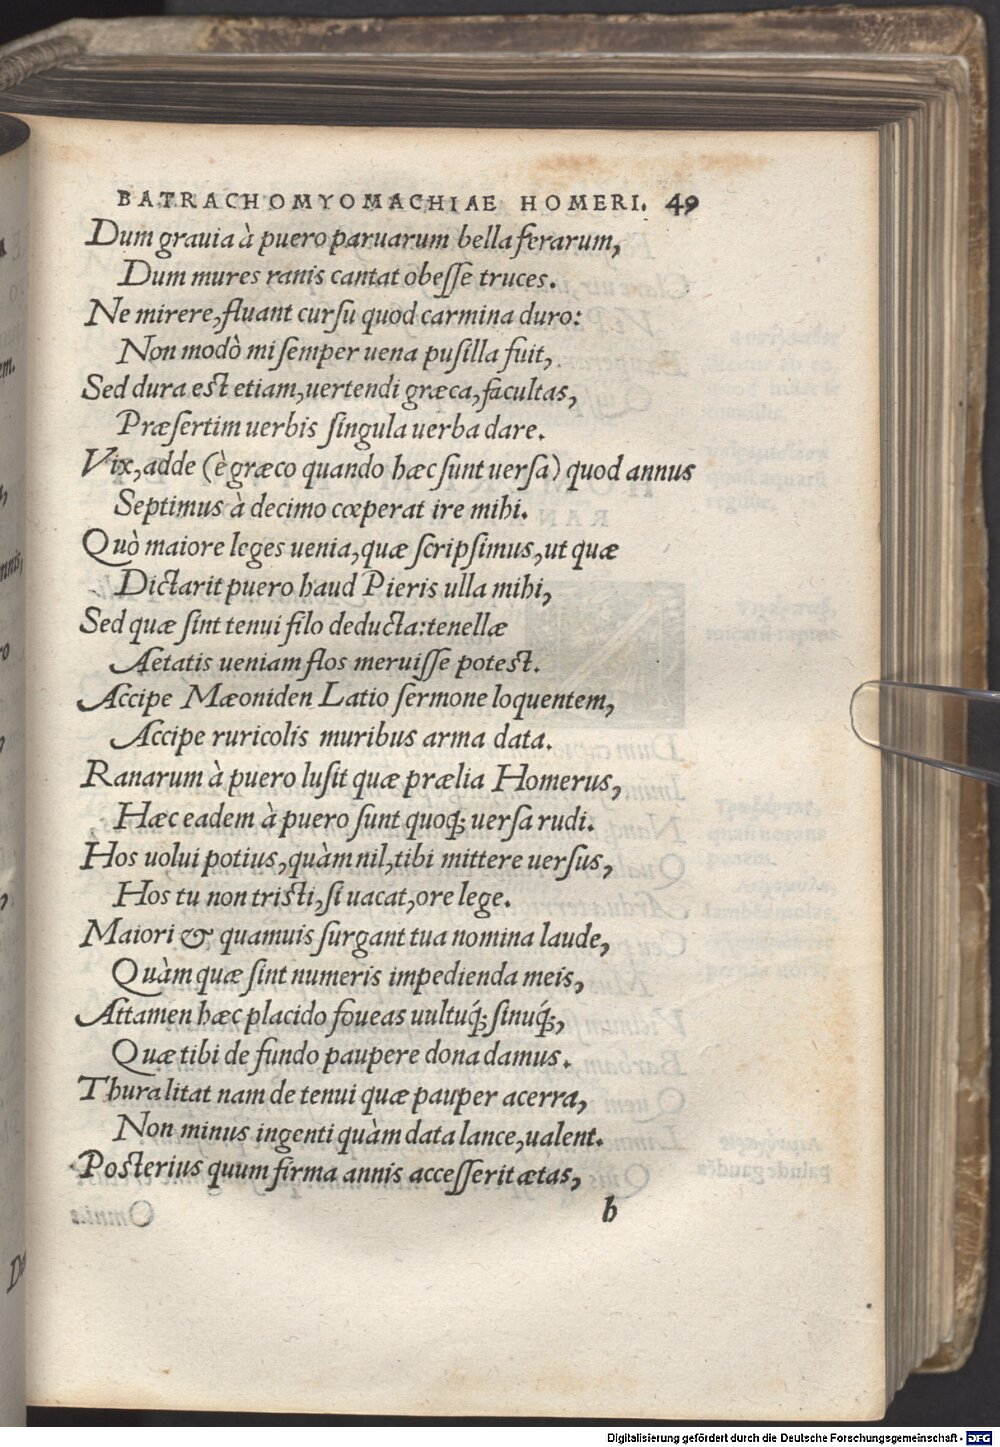 BATRACHOMYOMACHIAE HOMERI. 49
Dum grauia à puero paruarum bella ferarum,
Dum mures ranis cantat obeſſe truces.
Ne mirere, fluant curſu quod carmina duro:
Non modò mi ſemper uena puſilla fuit,
Sed dura est etiam, uertendi græca, facultas,
Præſertim uerbis ſingula uerba dare.
Vix, adde (è græco quando hæc ſunt uerſa) quod annus
Septimus à decimo cœperat ire mihi.
Quò maiore leges uenia, quæ ſcripſimus, ut quæ
Dictarit puero haud Pieris ulla mihi,
Sed quæ ſint tenui filo deducta: tenellæ
Aetatis ueniam flos meruiſſe potest.
Accipe Mæoniden Latio ſermone loquentem,
Accipe ruricolis muribus arma data.
Ranarum à puero luſit quæ prælia Homerus,
Hæc eadem à puero ſunt quoq; uerſa rudi.
Hos uolui potius, quàm nil, tibi mittere uerſus,
Hos tu non tristi, ſi uacat, ore lege.
Maiori & quamuis ſurgant tua nomina laude,
Quàm quæ ſint numeris impedienda meis,
Attamen hæc placido foueas uultuq́; ſinuq́;,
Quæ tibi de fundo paupere dona damus.
Thura litat nam de tenui quæ pauper acerra,
Non minus ingenti quàm data lance, ualent.
Posterius quum firma annis acceſſerit ætas,
b
Digitalisierung gefördert durch die Deutsche Forschungsgemeinschaft - DFG